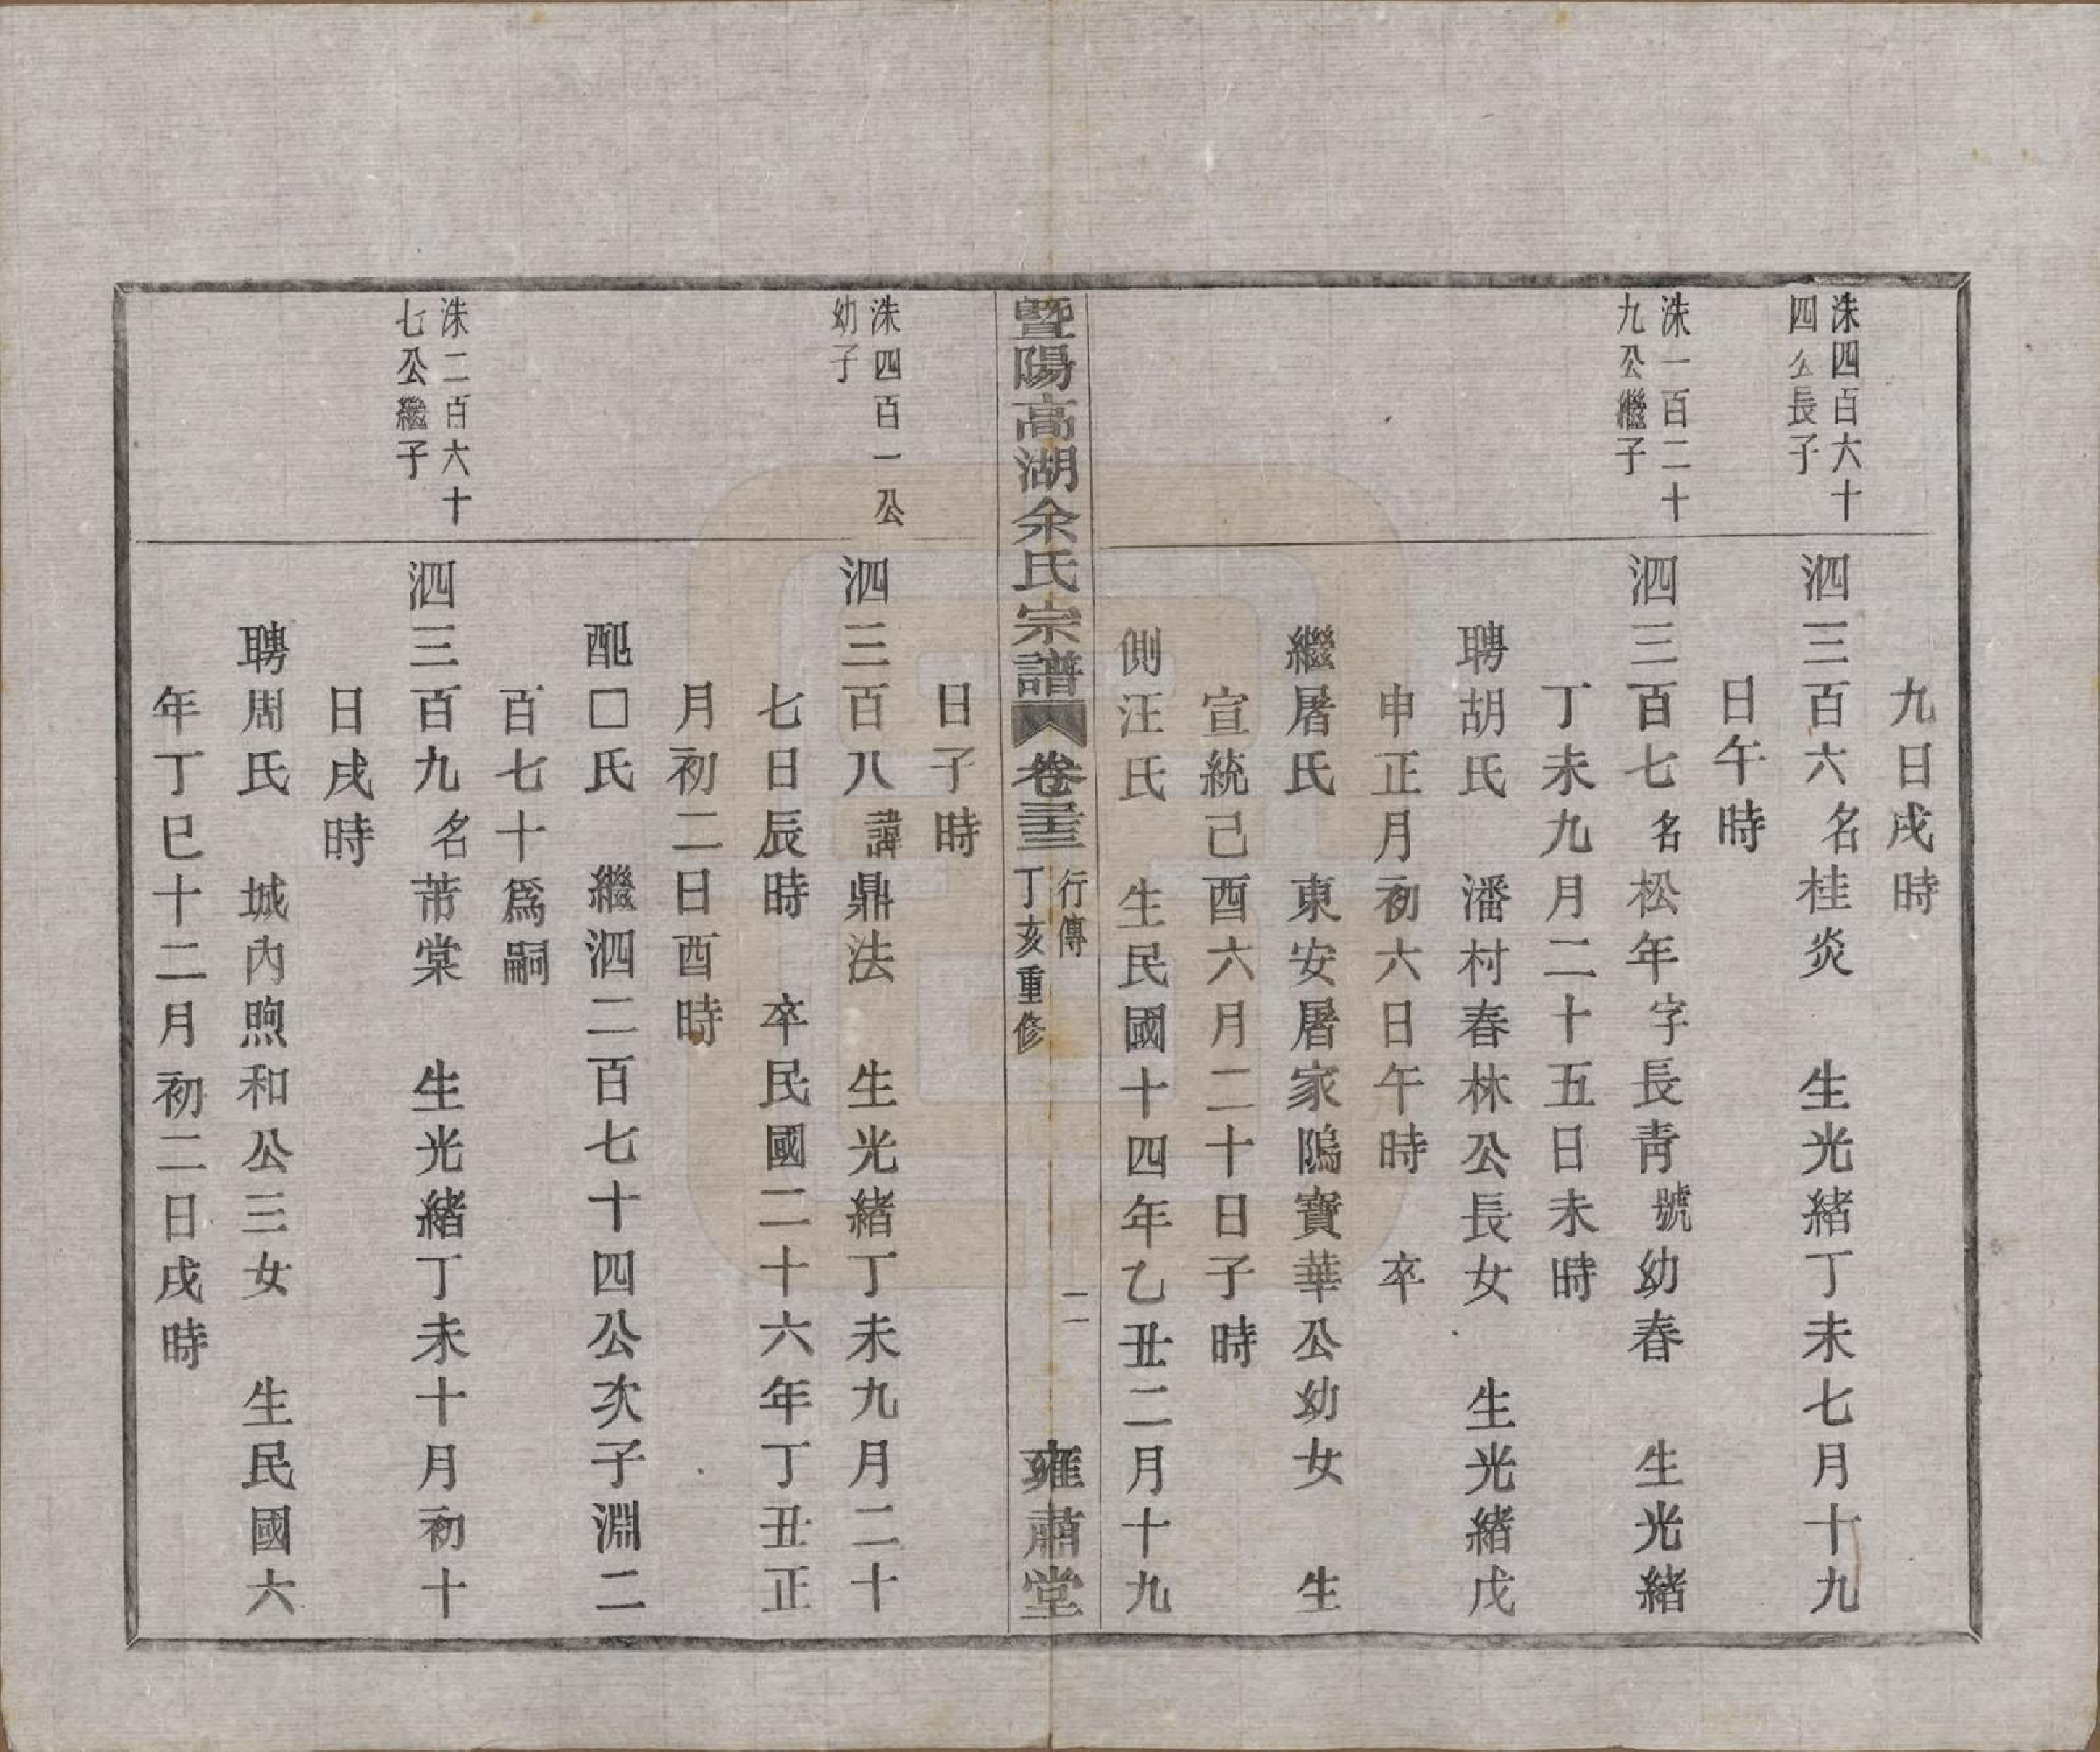 九日戌時
洙四百六十
四公長子
泗三百六名桂炎　生光緒丁未七月十九
日午時
洙一百二十
九公繼子
泗三百七名松年字長靑號幼春　生光緒
丁未九月二十五日未時
聘胡氏　潘村春林公長女　生光緒戊
申正月初六日午時　卒
繼屠氏　東安屠家隖寶華公幼女　生
宣統己酉六月二十日子時
側汪氏　生民國十四年乙丑二月十九
暨陽高湖余氏宗譜 卷三十三 行傳 丁亥重修 二 雍肅堂
日子時
洙四百一公
幼子
泗三百八諱鼎法　生光緒丁未九月二十
七日辰時　卒民國二十六年丁丑正
月初二日酉時
配□氏　繼泗二百七十四公次子淵二
百七十爲嗣
洙二百六十
七公繼子
泗三百九名芾棠　生光緒丁未十月初十
日戌時
聘周氏　城內煦和公三女　生民國六
年丁巳十二月初二日戌時